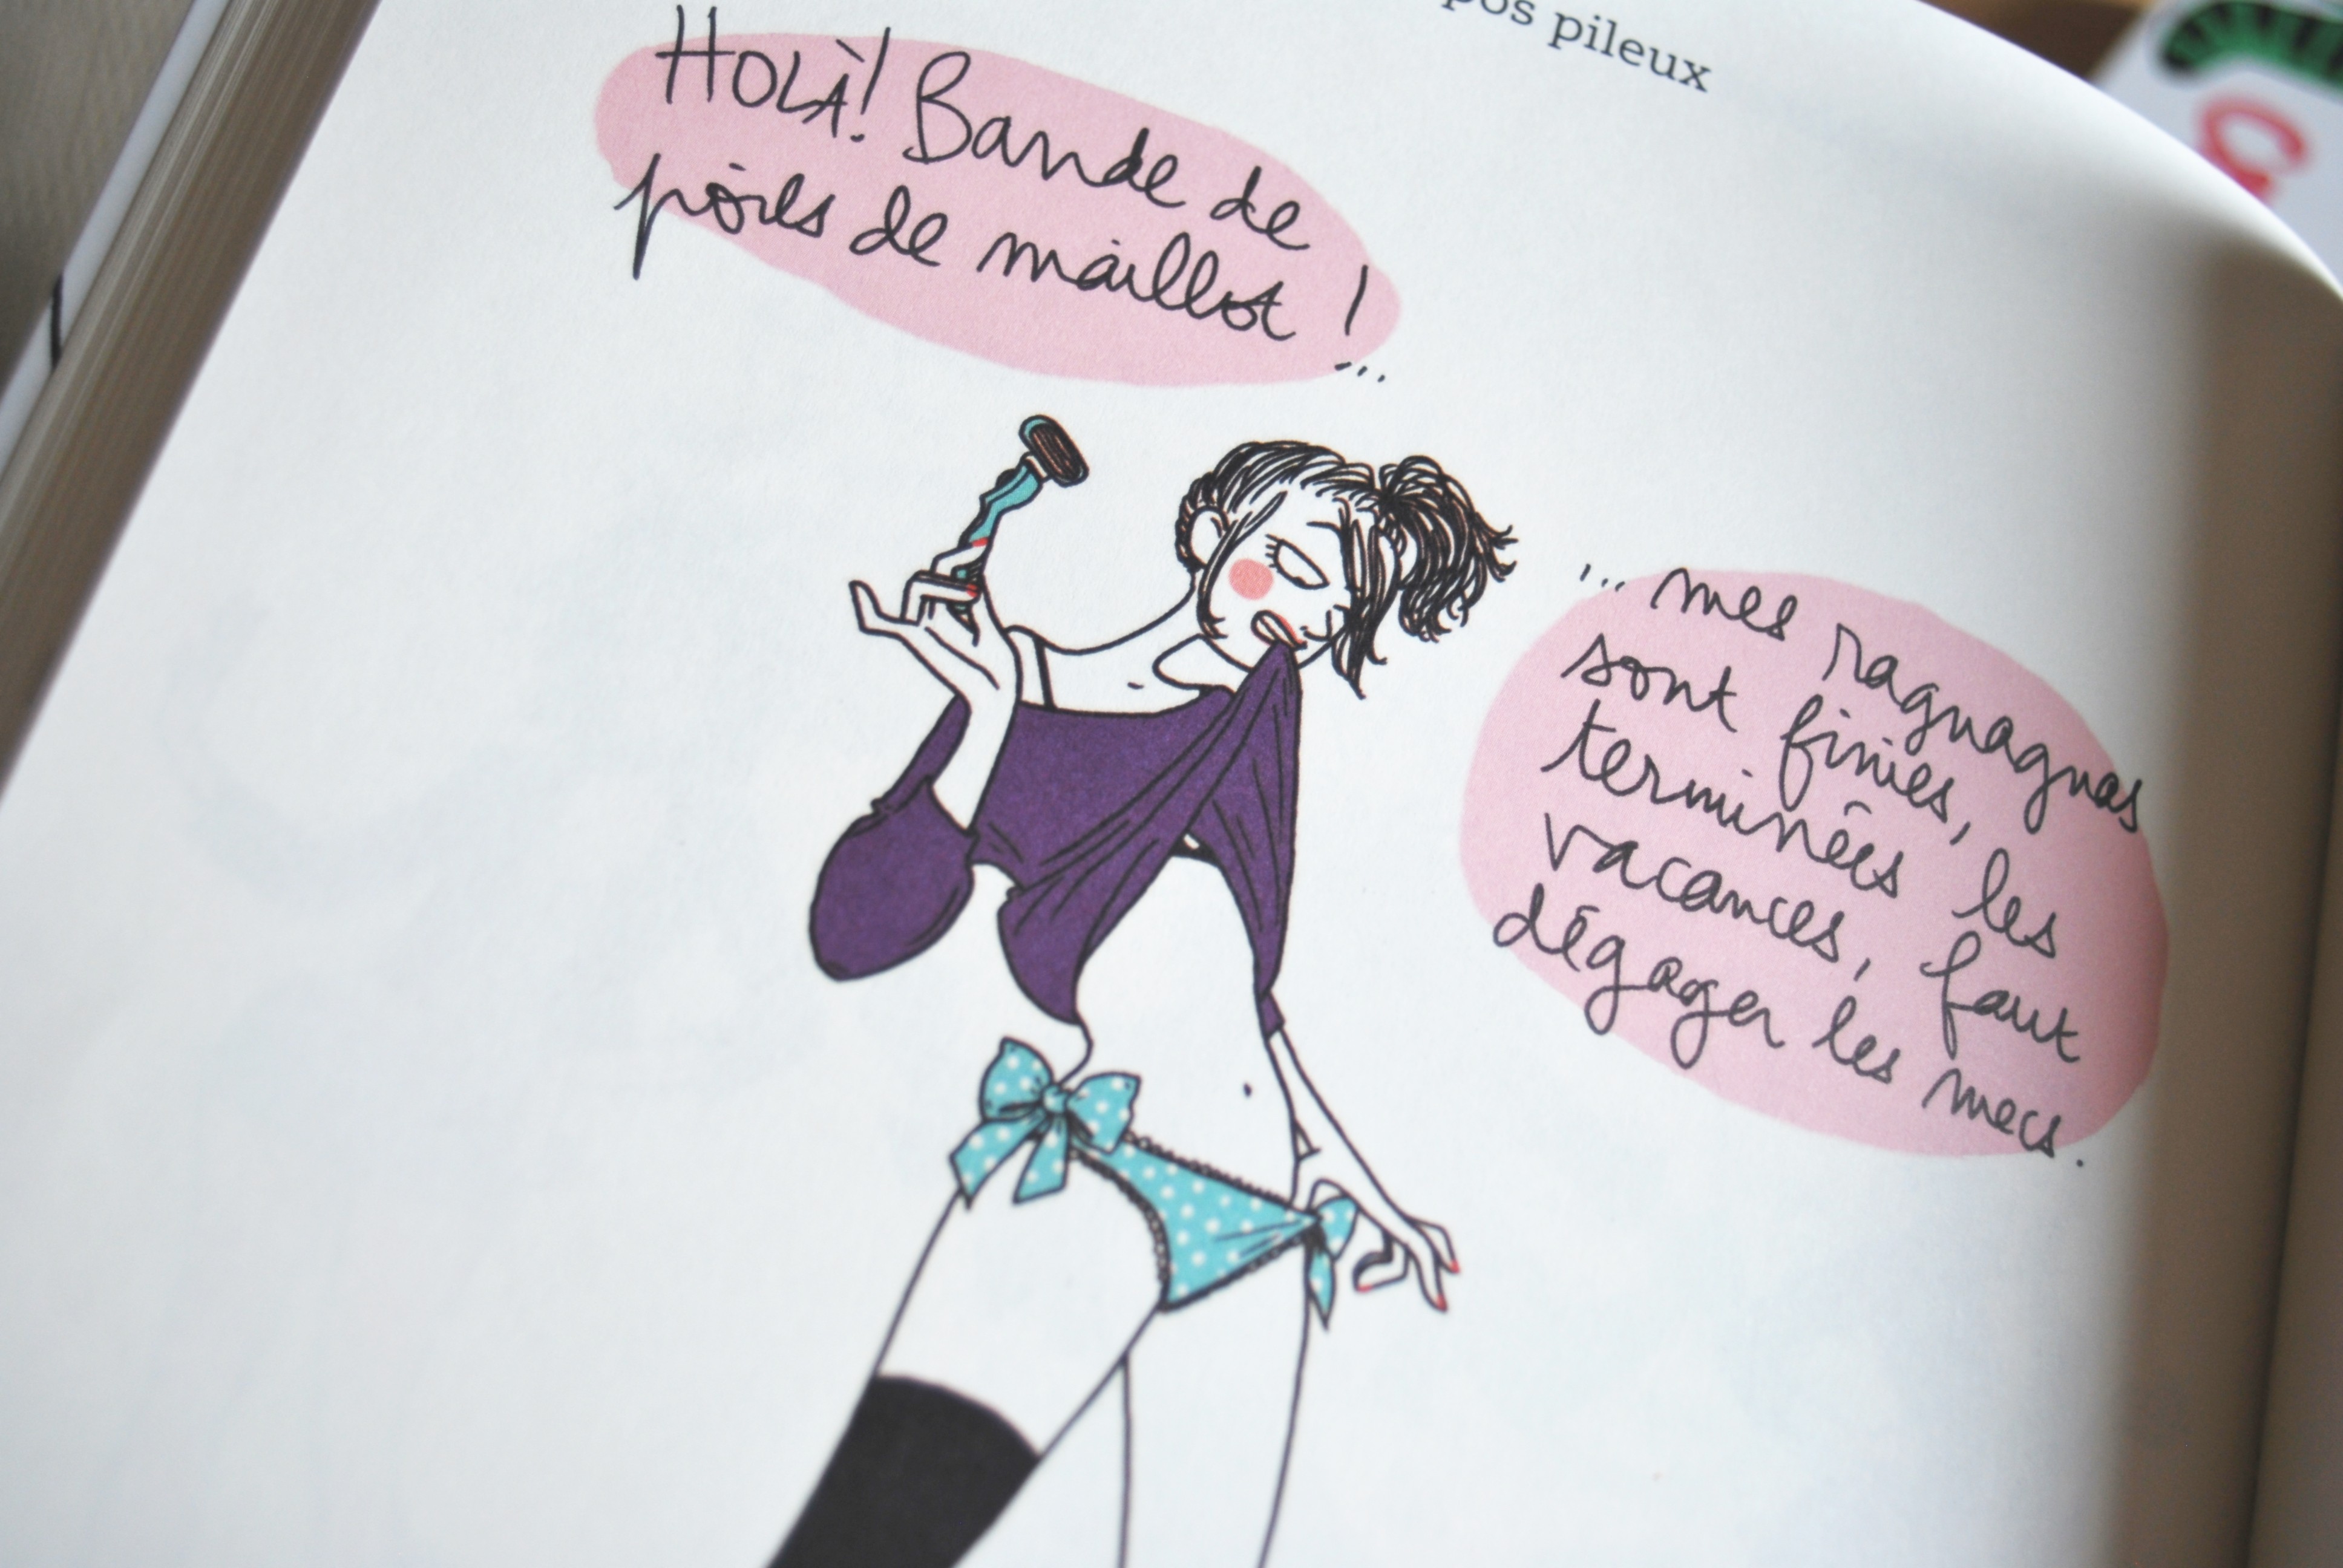 pos pileux
HOLÀ! Bande de
poils de maillot !
...
... mes ragnagnas
sont finies,
terminées, les
vacances, faut
dégager les mecs.